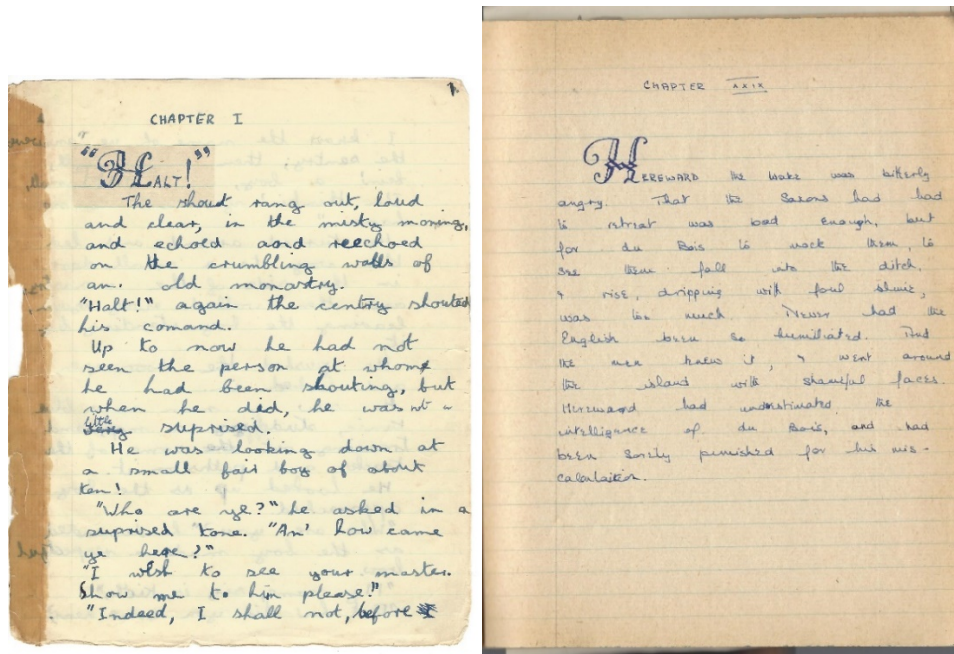 1.
CHAPTER I
"HALT!"
The shout rang out, loud
and clear, in the misty moring,
and echoed aond reechoed
on the crumbling walls of
an. old monastry.
"Halt!" again the centry shouted
his comand.
Up to now he had not
seen the person at whom
he had been shouting, but
when he did, he was not a
little suprised.
He was looking down at
a small fair boy of about
ten!
"Who are ye?" he asked in a
suprised tone. "An' how came
ye here?"
"I wish to see your master.
Show me to him please!"
"Indeed, I shall not, before
CHAPTER XXIX
HEREWARD the Wake was bitterly
angry. That the Saxons had had
to retreat was bad enough, but
for du Bois to mock them, to
see them fall into the ditch,
& rise, dripping with foul slime,
was too much. Never had the
English been so humiliated. And
the men knew it, & went around
the island with shameful faces.
Hereward had understimated the
intelligence of du Bois, and had
been sorely punished for his mis-
calulation.